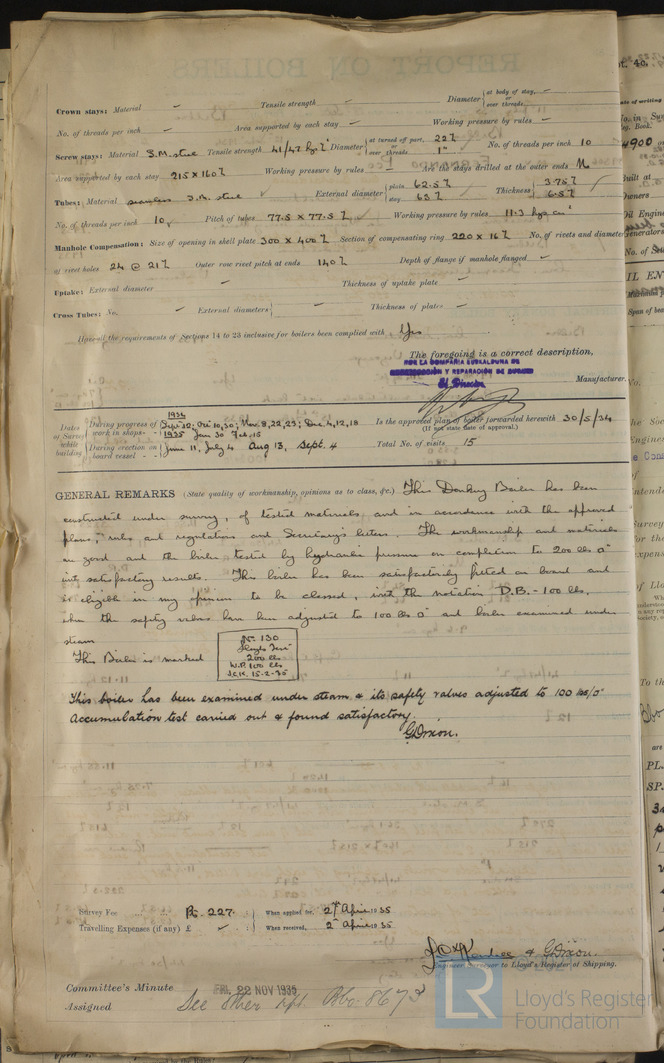 Crown stays: Material ✓ Tensile strength ✓ Diameter { at body of stay, ✓ or over threads
No. of threads per inch ✓ Area supported by each stay ✓ Working pressure by rules ✓
Screw stays: Material S.M. steel Tensile strength 41/47 Diameter { at turned off part, 22 or over threads 1" No. of threads per inch 10
Area supported by each stay 215 x 160 Working pressure by rules Are the stays drilled at the outer ends No
Tubes: Material seamless S.M. steel External diameter { plate 62.5 stay 63 Thickness { 3.75 6.5
No. of threads per inch 10 Pitch of tubes 77.5 x 77.5 Working pressure by rules 11.3
Manhole Compensation: Size of opening in shell plate 300 x 400 Section of compensating ring 220 x 16 No. of rivets and diameter
of rivet holes 24 @ 21 Outer row rivet pitch at ends 140 Depth of flange if manhole flanged ✓
Uptake: External diameter ✓ Thickness of uptake plate ✓
Cross Tubes: No. ✓ External diameters { ✓ Thickness of plates ✓
Have all the requirements of Sections 14 to 23 inclusive for boilers been complied with Yes
The foregoing is a correct description,
POR LA COMPAÑIA EUSKALDUNA DE
CONSTRUCCIÓN Y REPARACIÓN DE BUQUES
El Director
Manufacturer.
Dates of Survey while building { During progress of work in shops - - 1934 Sept 20; Oct 10,30; Nov. 8,22,23; Dec. 4,12,18 1935 Jan 30 Feb. 15
Is the approved plan of boiler forwarded herewith 30/5/34
(If not state date of approval.)
During erection on board vessel - - - June 11, July 4 Aug 13, Sept. 4 Total No. of visits 15
GENERAL REMARKS (State quality of workmanship, opinions as to class, &c.) This Donkey Boiler has been
constructed under survey, of tested materials, and in accordance with the approved
plans, rules and regulations and Secretary's letters. The workmanship and materials
are good and the boiler tested by hydraulic pressure on completion to 200 lbs □"
with satisfactory results. This boiler has been satisfactorily fitted on board and
is eligible in my opinion to be classed, with the notation D.B. - 100 lbs,
when the safety valves have been adjusted to 100 lbs □" and boiler examined under
steam
This Boiler is marked
No. 130
Lloyds Test
200 lbs
W.P. 100 lbs
15-2-35
This boiler has been examined under steam & its safety valves adjusted to 100 lbs/□"
Accumulation test carried out & found satisfactory.
G. Dixon.
Survey Fee ... Pts. 227. : When applied for, 2nd April 1935
Travelling Expenses (if any) £ ✓ : When received, 2nd April 1935
& G. Dixon.
Engineer Surveyor to Lloyd's Register of Shipping.
Committee's Minute FRI. 22 NOV 1935
Assigned See other rpt. Blbo. 8673
LR Lloyd's Register Foundation